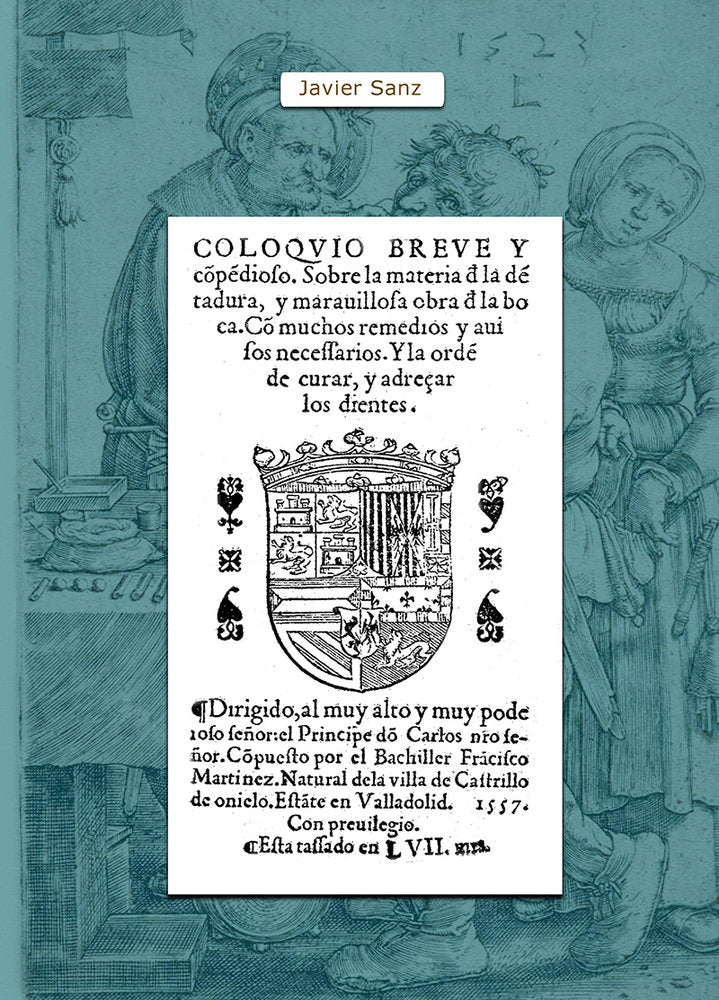 1523
L
Javier Sanz
COLOQVIO BREVE Y
cõpẽdioſo. Sobre la materia đ la dẽ
tadura, y marauilloſa obra đ la bo
ca. Cõ muchos remedios y aui
ſos neceſſarios. Y la ordẽ
de curar, y adreçar
los dientes.
¶Dirigido, al muy alto y muy pode
roſo ſeñor: el Principe dõ Carlos nr̃o ſe-
ñor. Cõpueſto por el Bachiller Frãciſco
Martinez. Natural dela villa de Caſtrillo
de onielo. Eſtãte en Valladolid. 1557.
Con preuilegio.
¶Eſta taſſado en LVII. mrs.